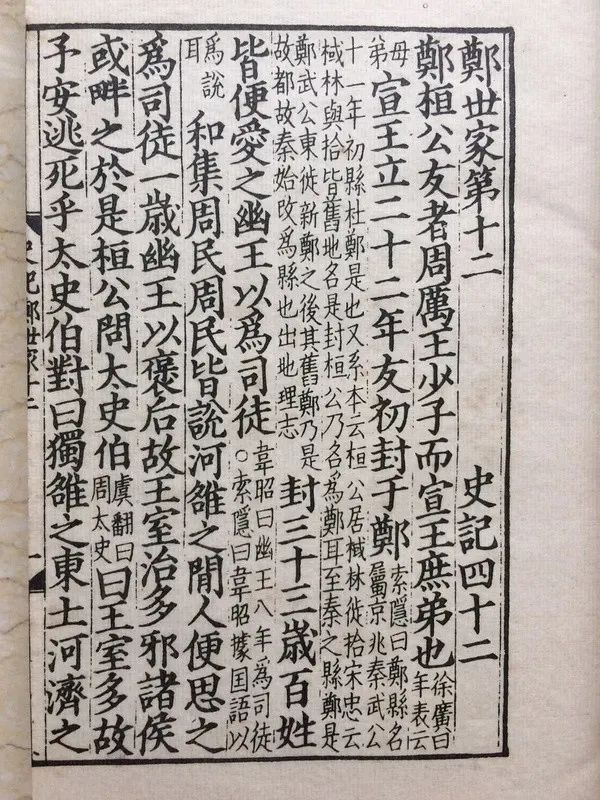 鄭世家第十二　史記四十二
鄭桓公友者周厲王少子而宣王庶弟也徐廣曰年表云
母弟宣王立二十二年友初封于鄭索隱曰鄭縣名屬京兆秦武公
十一年初縣杜鄭是也又系本云桓公居棫林徙拾宋忠云
棫林與拾皆舊地名是封桓公乃名爲鄭耳至秦之縣鄭是
鄭武公東徙新鄭之後其舊鄭乃是故都故秦始改爲縣也出地理志封三十三歲百姓
皆便愛之幽王以爲司徒韋昭曰幽王八年爲司徒○索隱曰韋昭據国語以
爲說耳和集周民周民皆說河雒之閒人便思之
爲司徒一歲幽王以褒后故王室治多邪諸侯
或畔之於是桓公問太史伯虞翻曰周太史曰王室多故
予安逃死乎太史伯對曰獨雒之東土河濟之
史記鄭世家十二